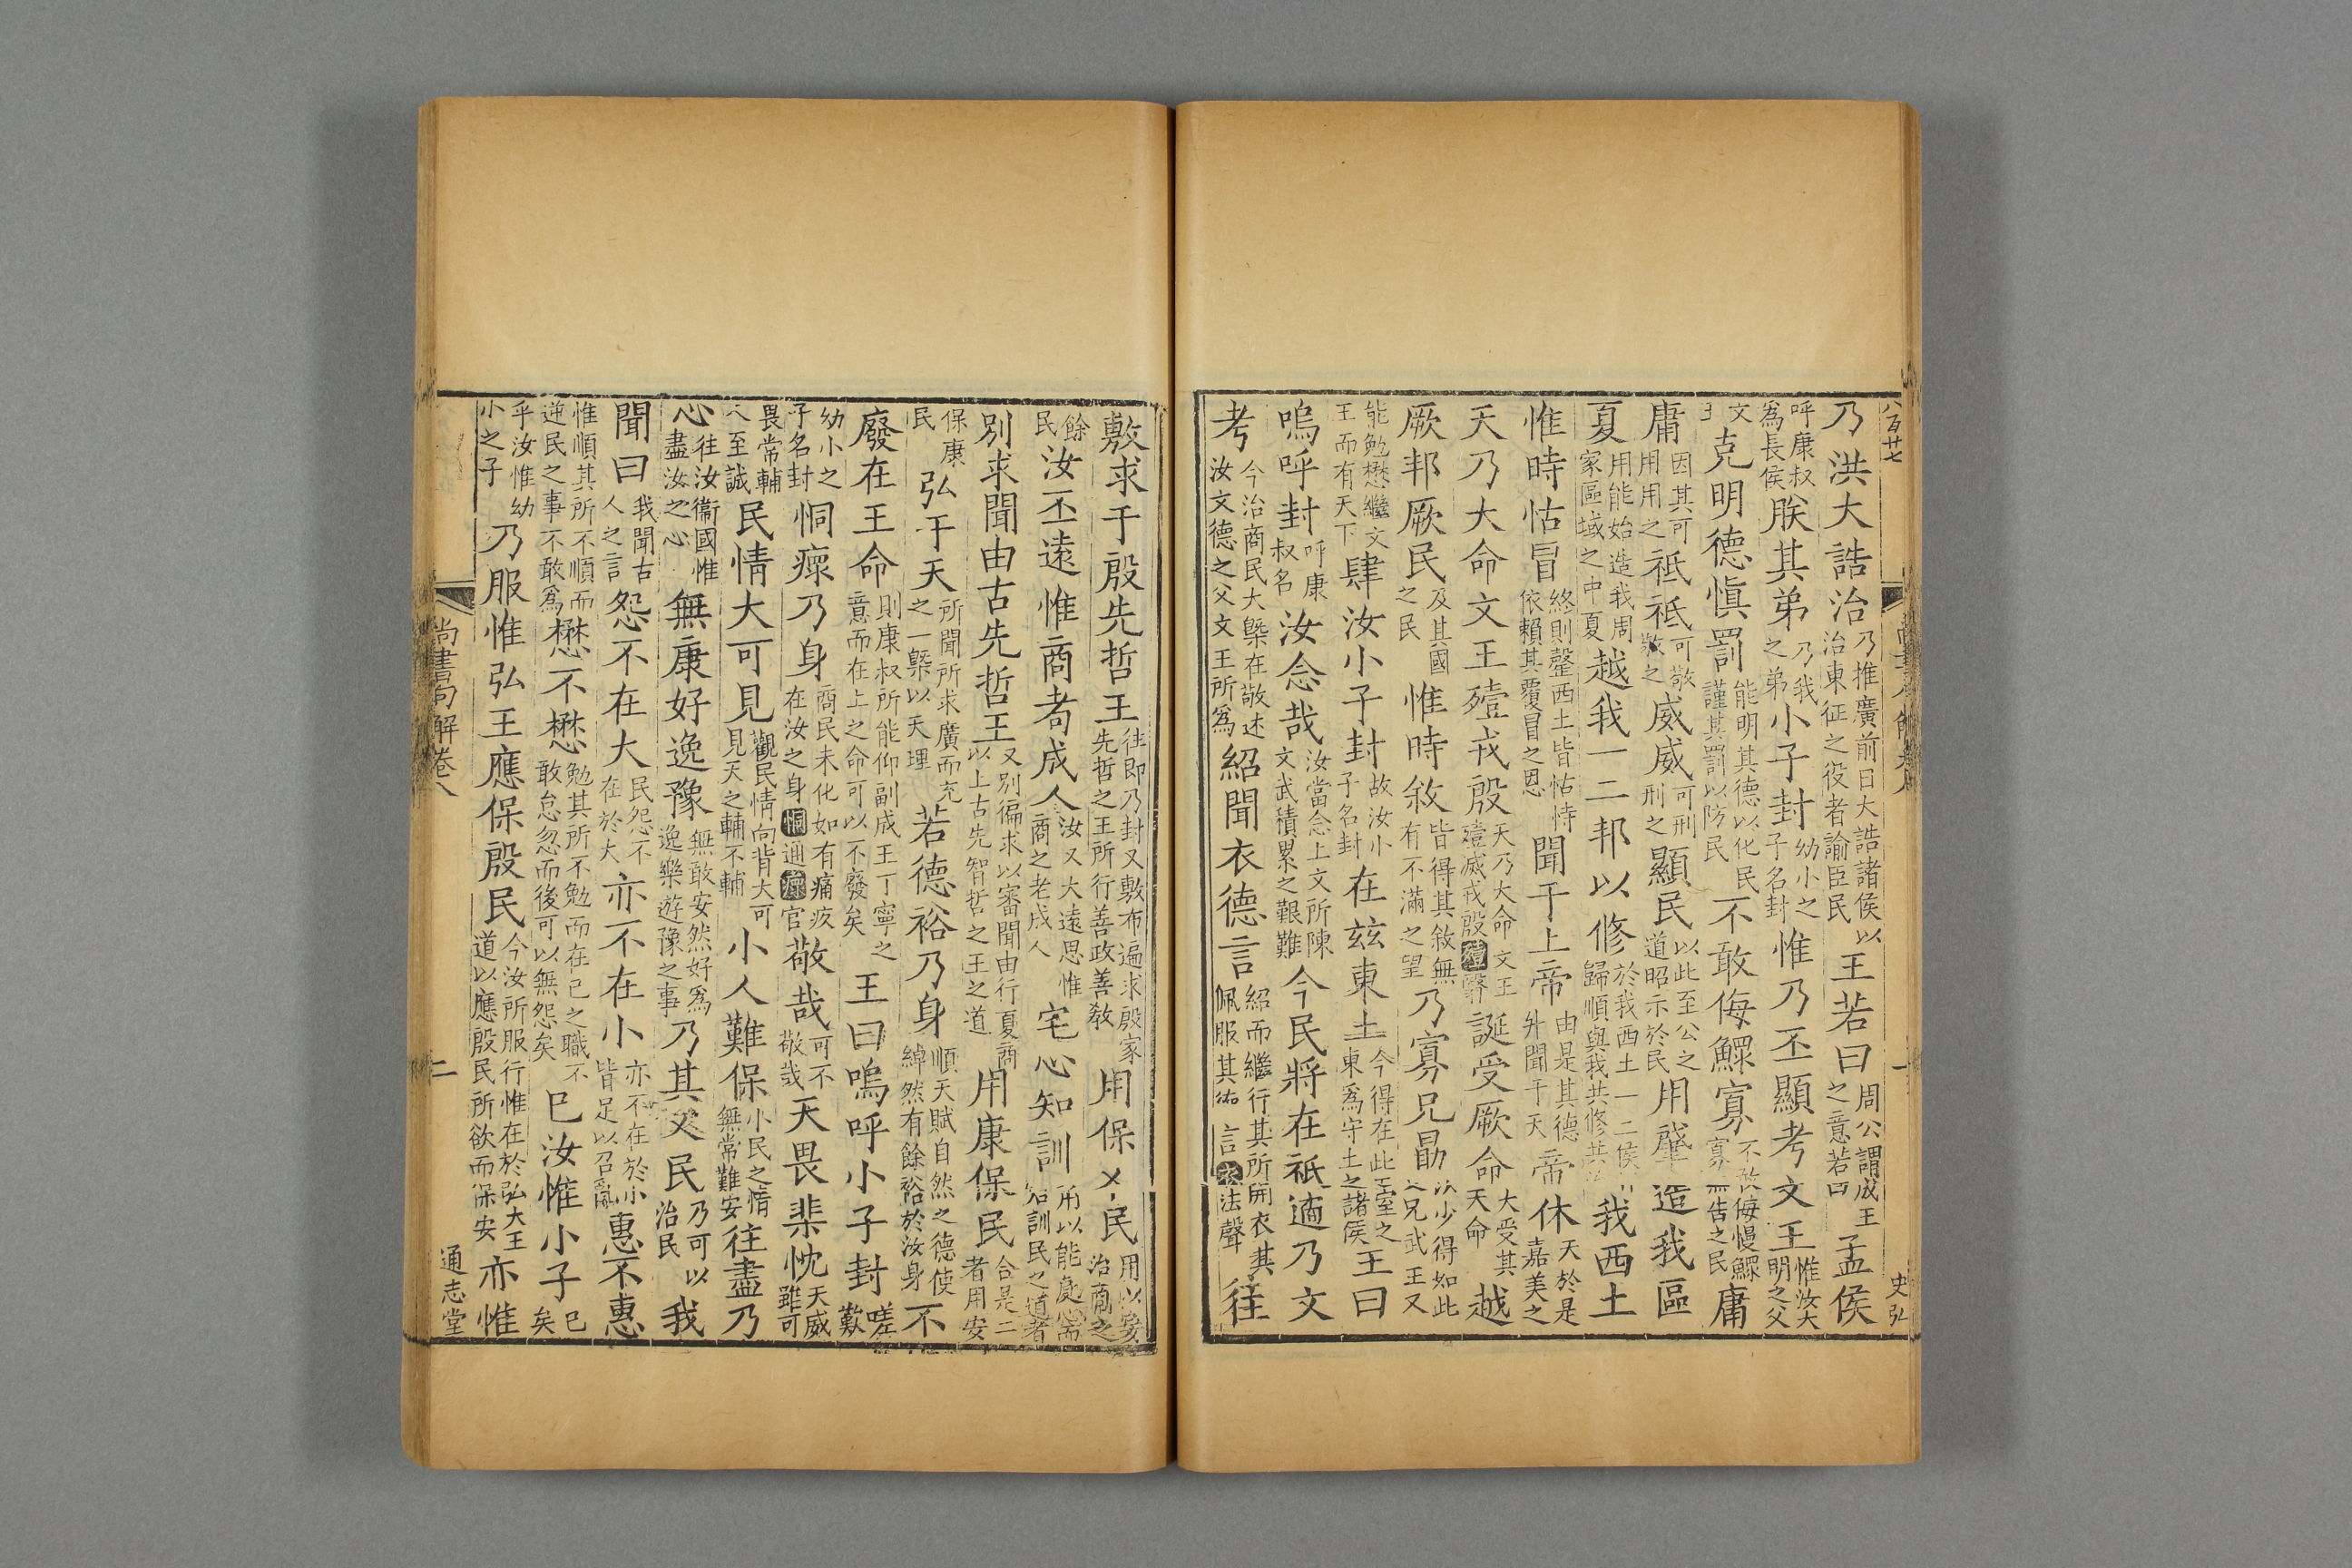 八百廿七 一 史弘
乃洪大誥治乃推廣前日大誥諸侯以治東征之役者諭臣民王若曰周公謂成王之意若曰孟侯
呼康叔爲長侯朕其弟乃我之弟小子封幼小之子名封惟乃丕顯考文王惟汝大明之父
文王克明德愼罰能明其德以化民謹其罰以防民不敢侮鰥寡不敢侮慢鰥寡無告之民庸
庸因其可用用之祗祗可敬敬之威威可刑刑之顯民以此至公之道昭示於民用肇造我區
夏用能始造我周家區域之中夏越我一二邦以修於我西土一二侯歸順與我共修其我西土
惟時怙冒終則罄西土皆怙恃依賴其覆冒之恩聞于上帝由是其德升聞于天帝休天於是嘉美之
天乃大命文王殪戎殷天乃大命文王殪滅戎殷殪翳誕受厥命大受其天命越
厥邦厥民及其國之民惟時敘皆得其敘無有不滿之望乃寡兄勖少得如此之兄武王又
能勉懋繼文王而有天下肆汝小子封故汝小子名封在玆東土今得在此王室之東爲守土之諸侯王曰
嗚呼封呼康叔名汝念哉汝當念上文所陳文武積累之艱難今民將在祗遹乃文
考今治商民大槩在敬述汝文德之父文王所爲紹聞衣德言紹而繼行其所聞衣其佩服其德言衣法聲往
敷求于殷先哲王往即乃封又敷布遍求殷家先哲之王所行善政善敎用保乂民用以安治商之
餘民汝丕遠惟商耇成人汝又大遠思惟商之老成人宅心知訓用以能處心而知訓民之道者
別求聞由古先哲王又別徧求以審聞由行夏商以上古先智哲之王之道用康保民合是二者用安
保康民弘于天所聞所求廣而充之一槩以天理若德裕乃身順天賦自然之德使綽然有餘裕於汝身不
廢在王命則康叔所能仰副成王丁寧之意而在上之命可以不廢矣王曰嗚呼小子封嗟歎
幼小之子名封恫瘝乃身商民未化如有痛疚在汝之身恫通瘝官敬哉可不敬哉天畏棐忱天威雖可
畏常輔之至誠民情大可見觀民情向背大可見天之輔不輔小人難保小民之情無常難安往盡乃
心往汝衞國惟盡汝之心無康好逸豫無敢安然好爲逸樂遊豫之事乃其乂民乃可以治民我
聞曰我聞古人之言怨不在大民怨不在於大亦不在小亦不在於小皆足以召亂惠不惠
惟順其所不順而逆民之事不敢爲懋不懋勉其所不勉而在己之職不敢怠忽而後可以無怨矣已汝惟小子已矣
乎汝惟幼小之子乃服惟弘王應保殷民今汝所服行惟在於弘大王道以應殷民所欲而保安亦惟
尚書句解卷八 二 通志堂